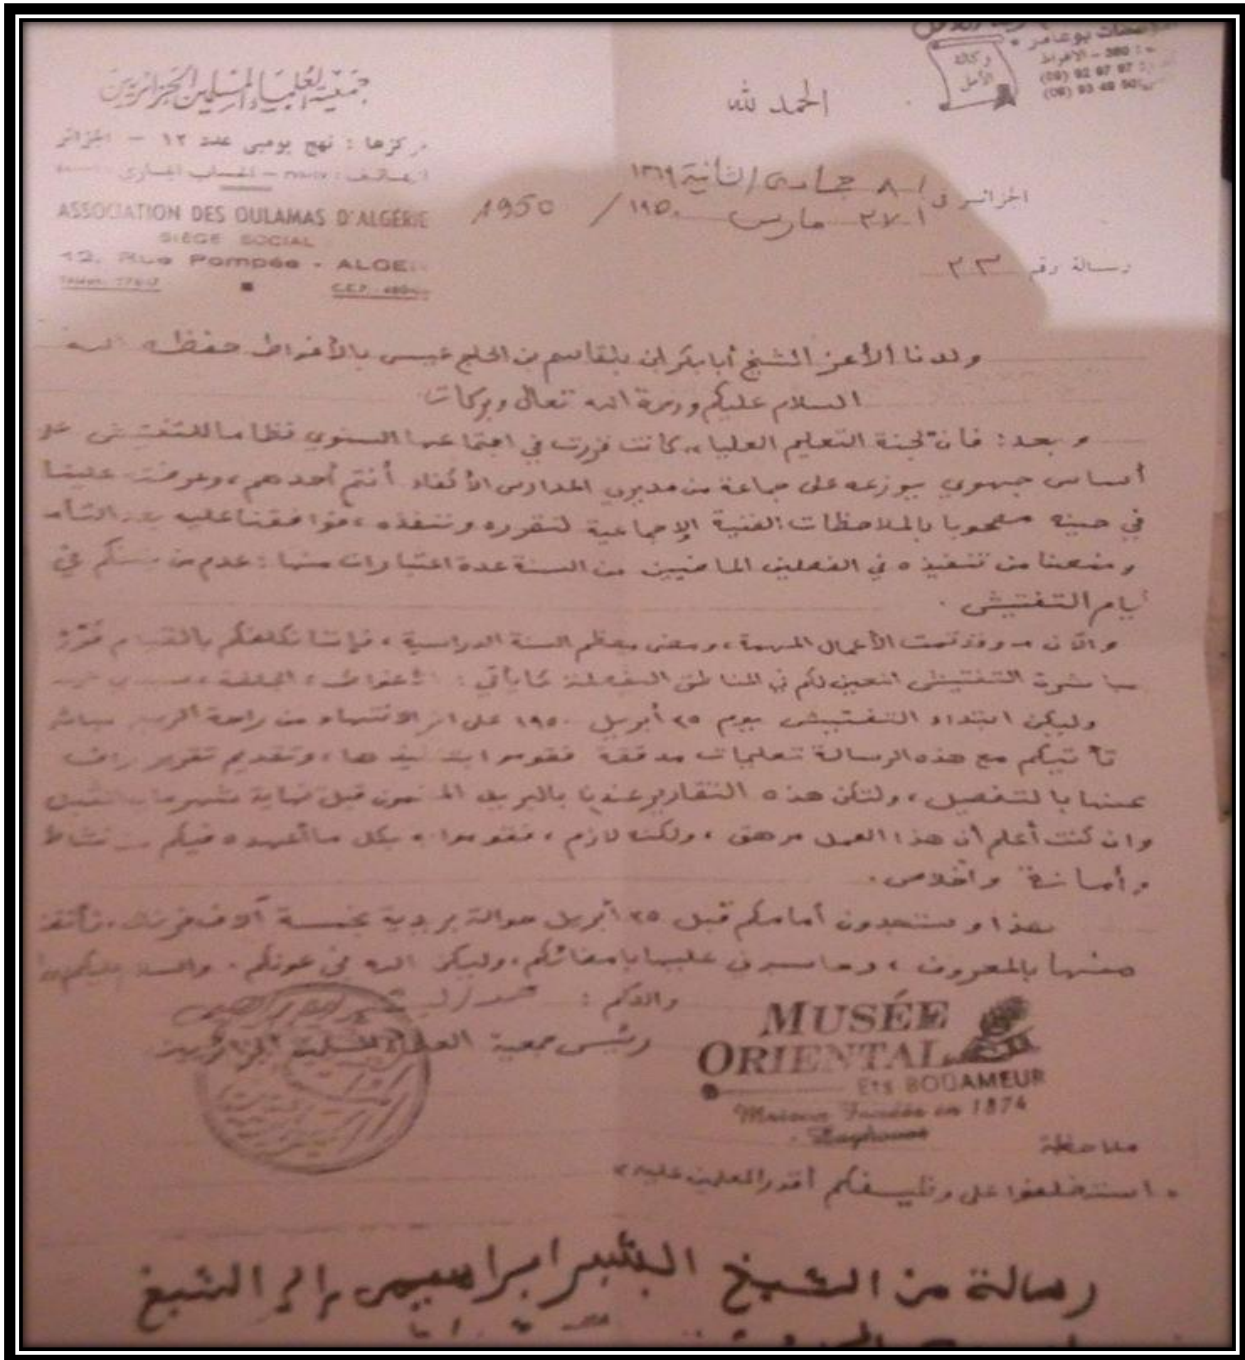 وكالة
الأمل
360 - الأغواط
(09) 92 97 97
(09) 93 49 50
الحمد لله
جمعية العلماء المسلمين الجزائريين
مركزها : نهج بومبي عدد ١٢ - الجزائر
الحساب الجاري
ASSOCIATION DES OULAMAS D'ALGÉRIE
SIÈGE SOCIAL
12, Rue Pompée - ALGER
C.C.P.
الجزائر في ٨ جمادى الثانية ١٣٦٩
٢٧ مارس ١٩٥٠ / 1950
رسالة رقم ٣٣
ولدنا الأعز الشيخ أبا بكر ابن بلقاسم بن الحاج عيسى بالأغواط حفظه الله
السلام عليكم ورحمة الله تعالى وبركاته
وبعد : فان لجنة التعليم العليا، كانت قررت في اجتماعها السنوي نظاما للتفتيش على
أساس جهوي يوزعه على جماعة من مديري المدارس الأكفاء أنتم أحدهم، وعرضته علينا
في حينه مصحوبا بالملاحظات الفنية الإجماعية لنقرره وننفذه، فوافقنا عليه بعد التأمل
ومنعنا من تنفيذه في الفصلين الماضيين من السنة عدة اعتبارات منها : عدم من في
أيام التفتيش .
والآن وقد تمت الأعمال المهمة، ومضى معظم السنة الدراسية، فإننا نكلفكم بالقيام
التفتيش المعين لكم في المناطق المفصلة كما يأتي : الأغواط، الجلفة،
وليكن ابتداء التفتيش يوم ٢٥ أبريل ١٩٥٠ على اثر الانتهاء من راحة الربيع مباشرة
تأتيكم مع هذه الرسالة تعليمات مدققة فقوموا بتنفيذها، وتقديم تقرير واف
عنها بالتفصيل، ولتكن هذه التقارير عندنا بالبريد المضمون قبل نهاية شهر
وان كنت أعلم أن هذا العمل مرهق، ولكنه لازم، فقوموا به بكل ما أعهده فيكم من نشاط
وأمانة واخلاص.
هذا وستجدون أمامكم قبل ٢٥ أبريل حوالة بريدية بخمسة آلاف فرنك،
منها بالمعروف، وحاسبون عليها بامضائكم، وليكن الله في عونكم . والسلام عليكم
والدكم : محمد البشير الابراهيمي
رئيس جمعية العلماء المسلمين الجزائريين
MUSÉE
ORIENTAL
Ets BOUAMEUR
Maison Fondée en 1874
- Laghouat
ملاحظة
استخلفوا على وظيفكم أقدر المعلمين عليه
رسالة من الشيخ البشير ابراهيمي إلى الشيخ